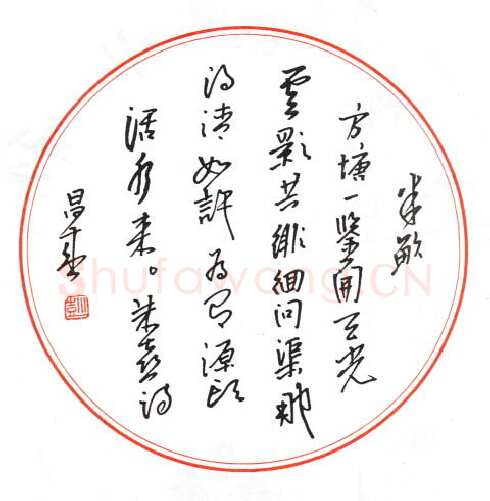 半畝
方塘一鑒開天光
雲影共徘徊问渠那
得清如許為有源頭
活水來。朱熹詩
昌
Shufawang.CN